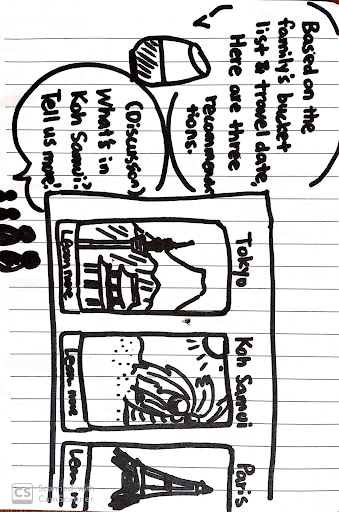 Based on the
family's bucket
list & travel date,
Here are three
recommenda
tions.
(Discussion)
What's in
Koh Samui?
Tell us more!
Tokyo
Learn more
Koh Samui
Learn more
Paris
CS